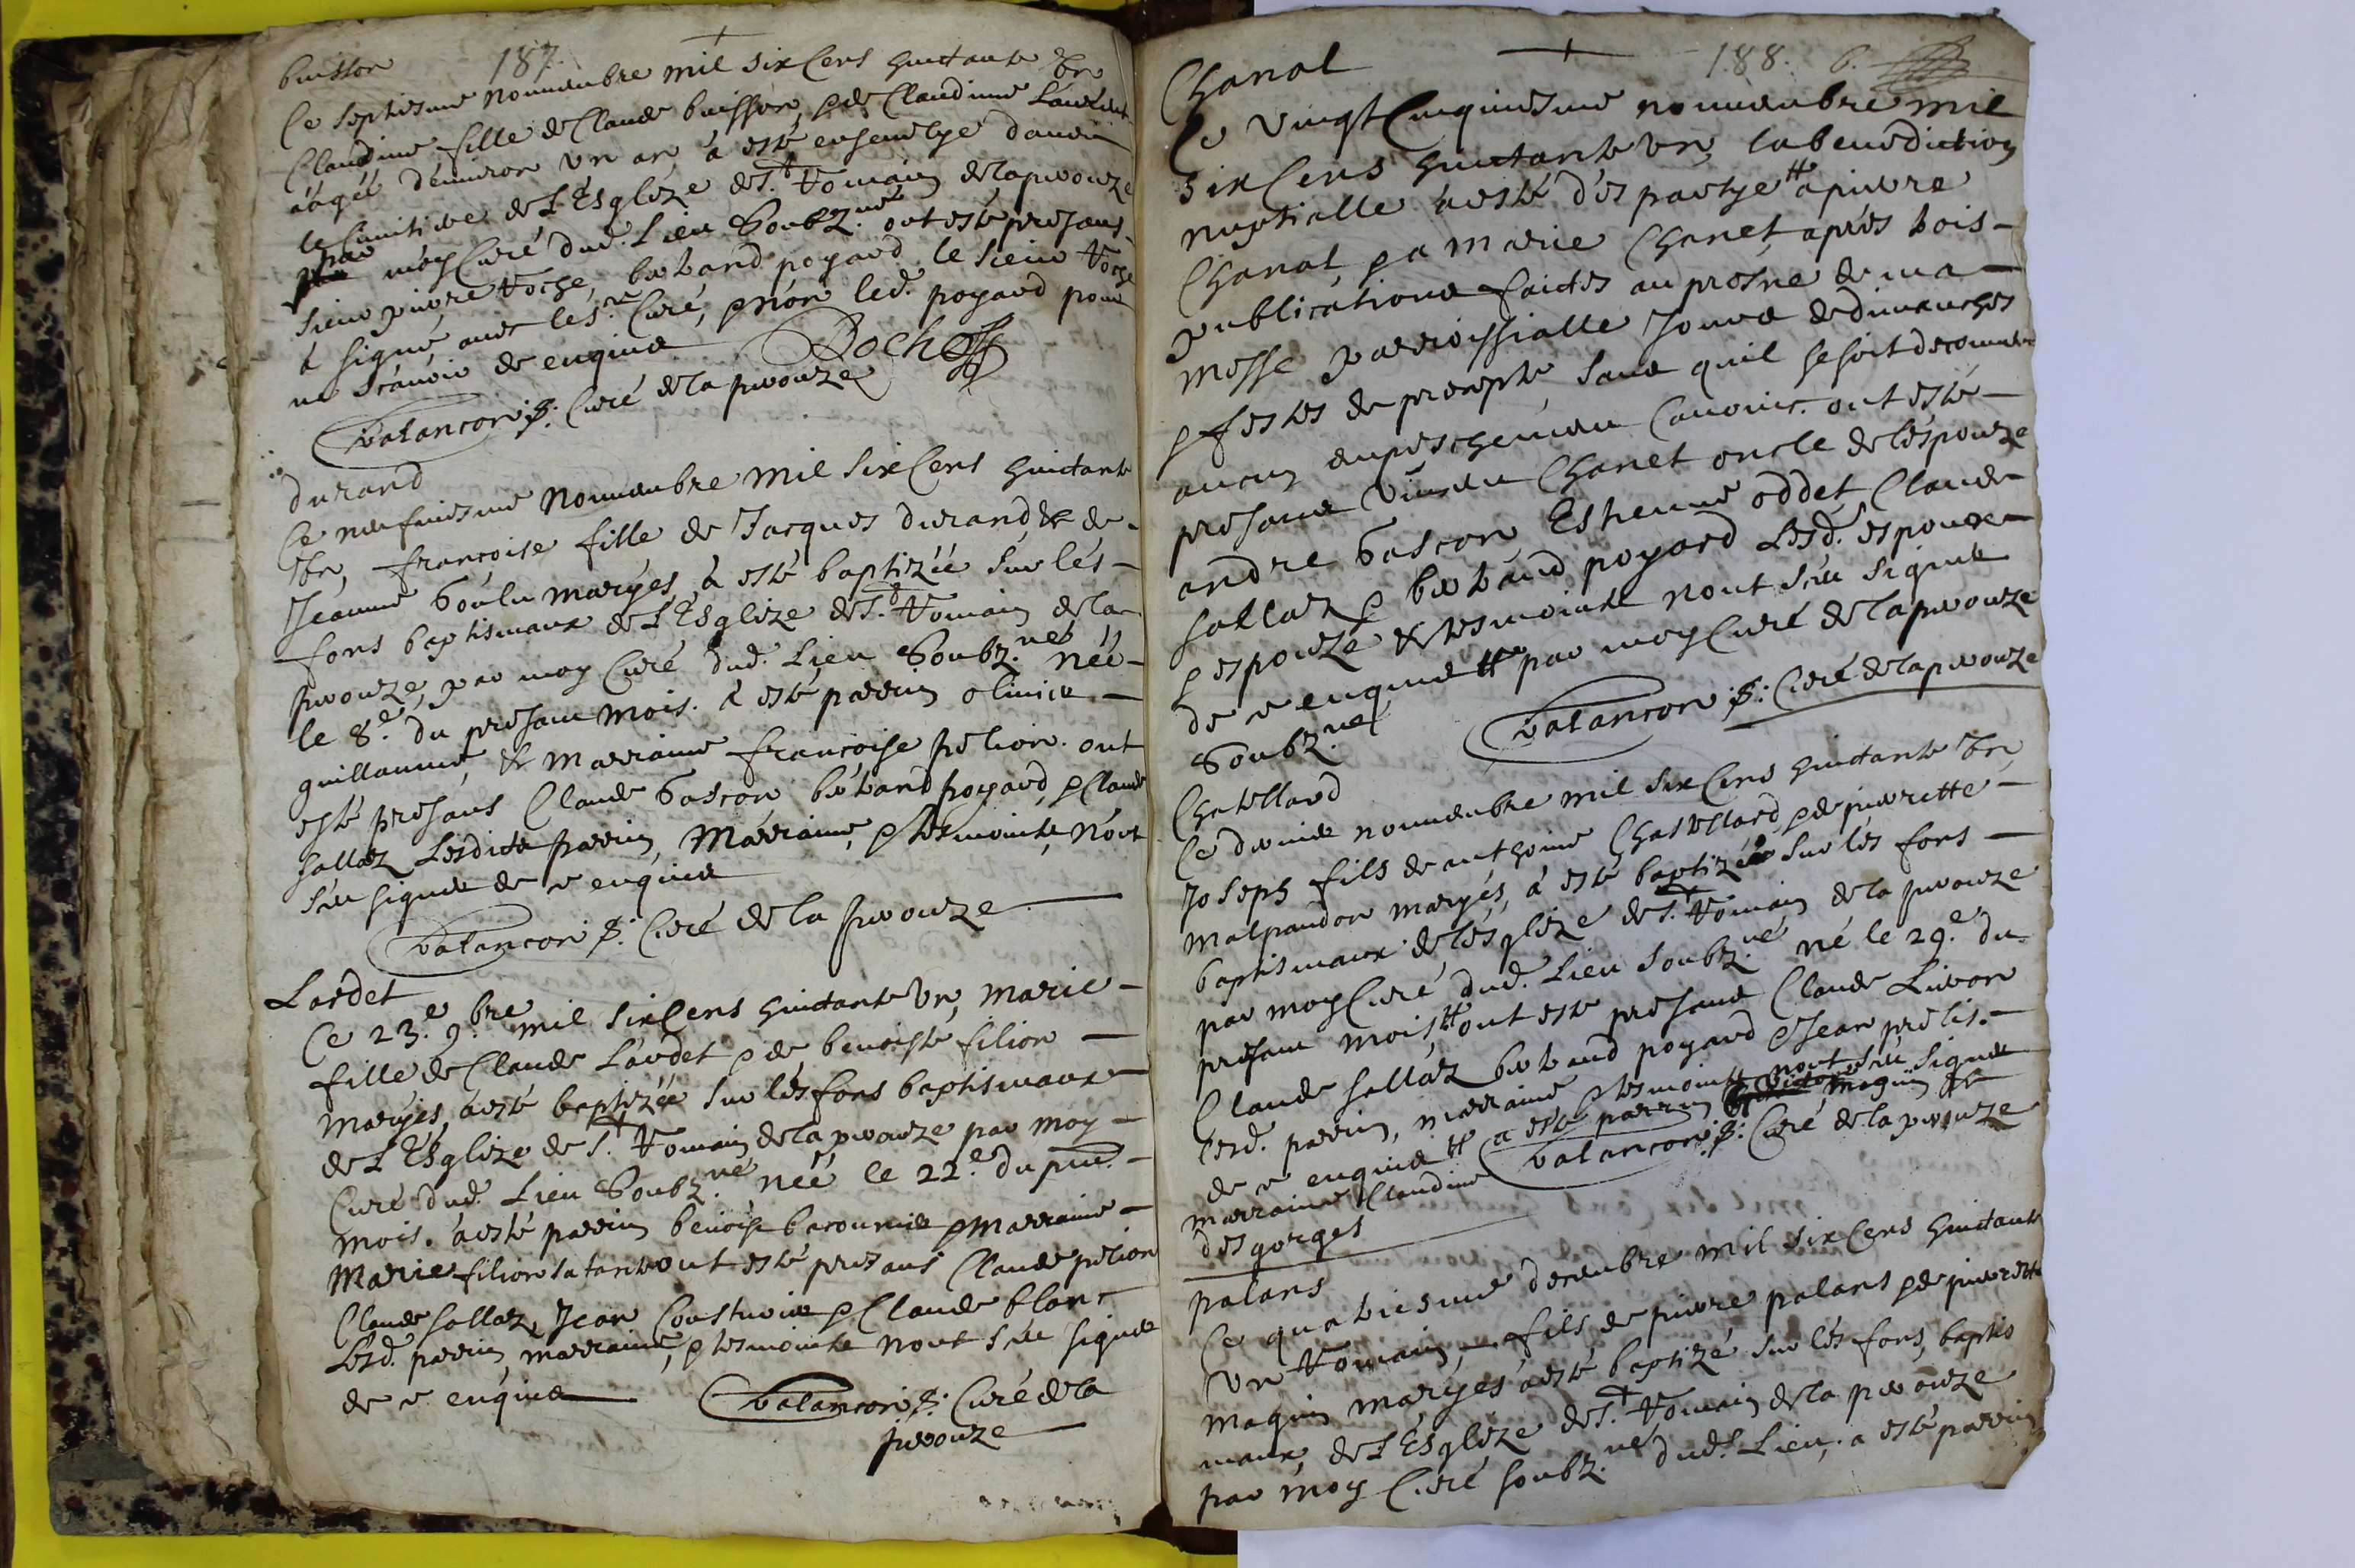 187.
buisson
Ce septiesme nouuembre mil six Cens huictante Vn
Claudine fille de Claude buisson, & de Claudine
aâgéé d'enuiron vn an à esté enseuelye dans
le Cimitiere de L'Esglize de St. Romain de lapiroüze
par moy Curé dud. Lieu Soubz.né ont esté presans
Sieur pierre Roche, bertrand poyard le Sieur Roche
à signé auec led. Sr Curé, & non led. poyard pour
ne sçauoir de enquis Roche
balancon p: Curé de la pirouze
durand
Ce neufuiesme Nouuembre mil six Cens huictante
Vn, françoise fille de Jacques durand & de
Jeanne Goulu maryés, à esté baptizéé sur lés
fons baptismaux de L'Esglize de St. Romain de la
pirouze, par moy Curé dud. Lieu Soubz.né néé
le 8e. du presant mois. à esté parrin oliuier
guillaume, & marraine françoise pelion. ont
esté presans Claude Gascon bertrand poyard, & Claude
sallaz Lesdits parrin, Marraine, & tesmoints, n'ont
sceu signer de ce enquis
balancon p: Curé de la pirouze
Lardet
Ce 23.e 9.bre mil six Cens huictante Vn, marie
fille de Claude Lardet & de benoiste filion
maryés, à esté baptizéé sur lés fons baptismaux
de L'Esglize de St. Romain de la pirouze par moy
Curé dud. Lieu Soubz.né néé le 22.e du pnt.
mois. à esté parrin benoist & marraine
Marie filion sa tante ont esté presans Claude pelion
Claude sallaz, Jean Cousturier & Claude blanc
Lesd. parrin, marraine, & tesmoints n'ont sceu signer
de ce enquis balancon p: Curé de la
pirouze
188. 6.
Chanal
Ce vingt Cinquiesme nouuembre mil
six Cens huictante vn, la benediction
nuptialle à esté despartye a pierre
Chanal, & a marie Chanet, aprés trois
publications faictes au prosne de ma
messe parroissialle Jours de dimanches
& festes de precepte, sans quil se soit descouuert
aucun empeschement Canonic. ont esté
presans Vincen Chanet oncle de lespouze
andre Gascon Estienne oddet, Claude
sallaz & bertrand poyard Lesd. espoux
& espouze & tesmoints n'ont sceu signer
de ce enquis par moy Curé de la pirouze
Soubz.né balancon p: Curé de la pirouze
Chatellard
Ce dernier nouuembre mil six Cens huictante Vn
Joseph fils de anthoine Chastellard, & de pierrette
malpaudon maryés, à esté baptizé sur lés fons
baptismaux de l'ésglize de St. Romain de la pirouze
par moy Curé dud. Lieu Soubz.né né le 29.e du
presant mois, ont esté presans Claude
Claude sallaz bertrand poyard & Jean
lesd. parrin, marraine & tesmoints n'ont sceu signer
de ce enquis a esté parrin magnin &
marraine Claudine balancon p: Curé de la pirouze
desgorges
palans
Ce quatriesme decembre mil six Cens huictante
Vn Romain, fils de pierre palans & de pierrette
magnin maryés à esté baptizé sur lés fons, baptis
maux, de L'Esglize de St. Romain de la pirouze
par moy Curé soubz.né dud. Lieu. a esté parrin